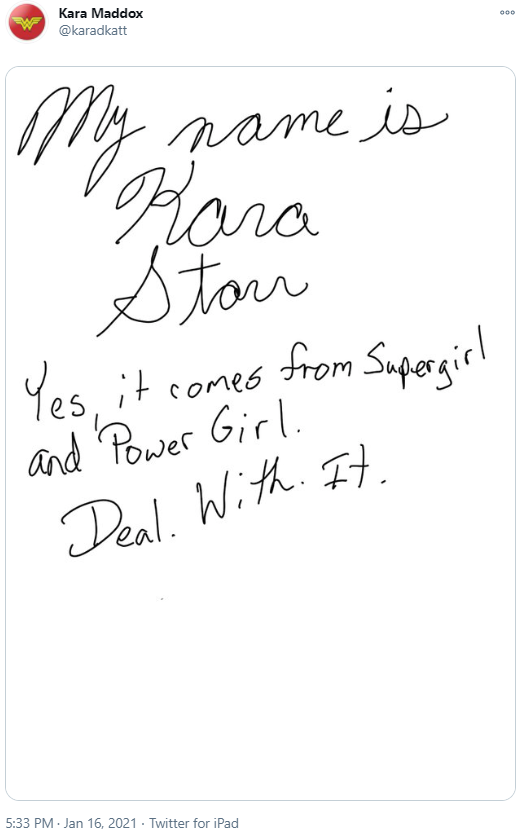 Kara Maddox
@karadkatt
My name is
Kara
Starr
Yes, it comes from Supergirl
and Power Girl.
Deal. With. It.
5:33 PM · Jan 16, 2021 · Twitter for iPad